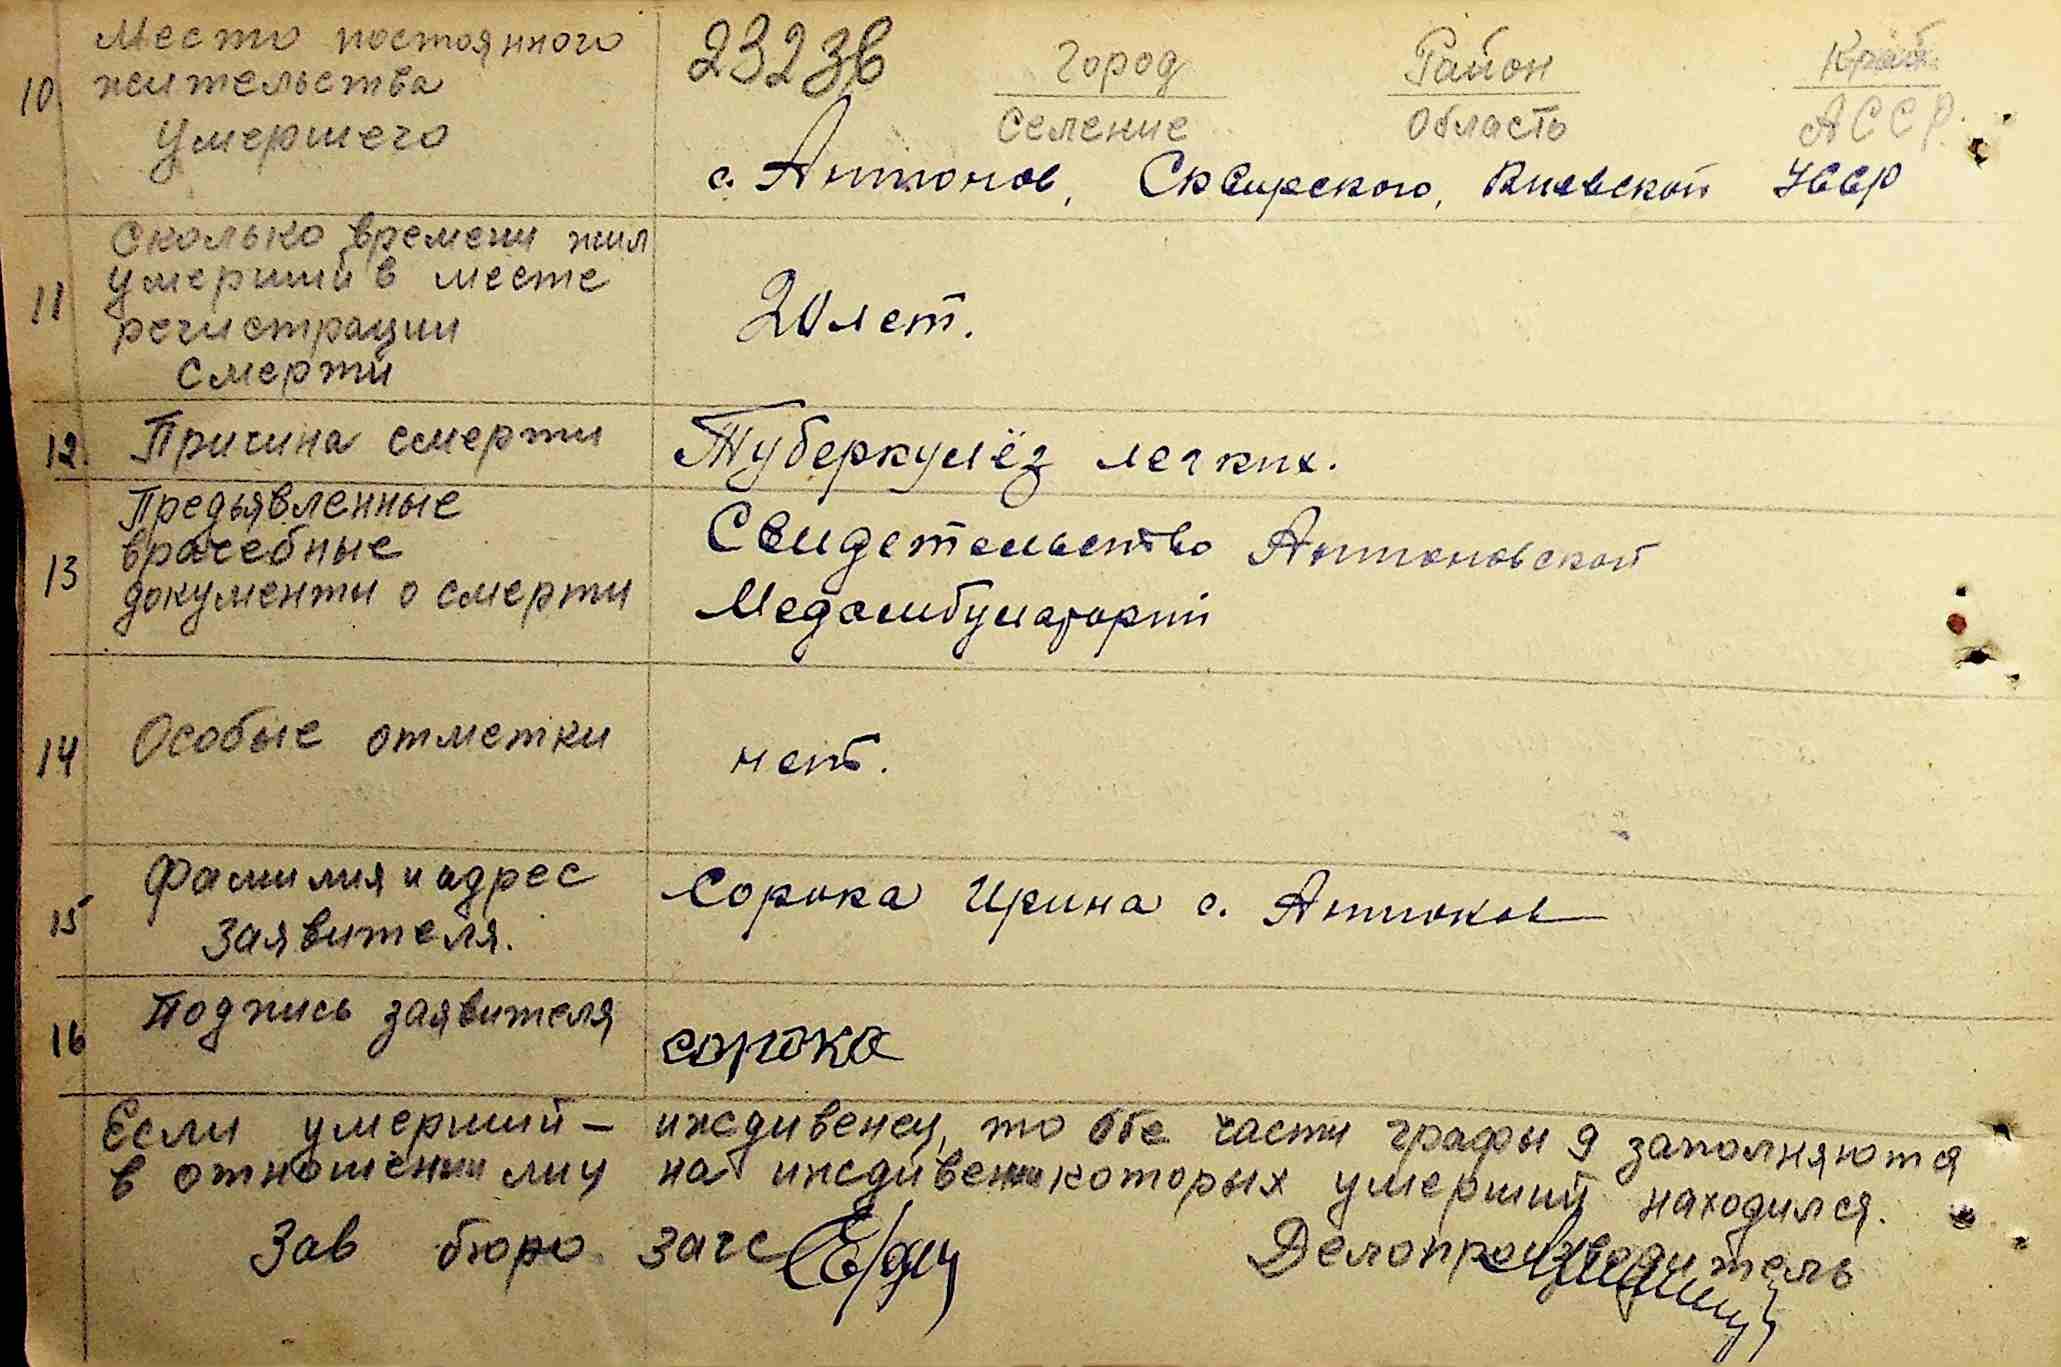 10 Место постоянного жительства умершего
23236
Город Район Край
Селение Область АССР
с. Антонов, Сквирского, Киевской УССР
11 Сколько времени жил
умерший в месте
регистрации
смерти
20 лет.
12 Причина смерти Туберкулёз легких.
13 Предъявленные
врачебные
документы о смерти
Свидетельство Антоновской
Медамбулаторий
14 Особые отметки нет.
15 Фамилия и адрес
заявителя.
Сорока Ирина с. Антонов
16 Подпись заявителя сорока
Если умерший – иждивенец, то обе части графы 9 заполняются
в отношении лиц на иждивении которых умерший находился.
Зав бюро загс Делопроизводитель